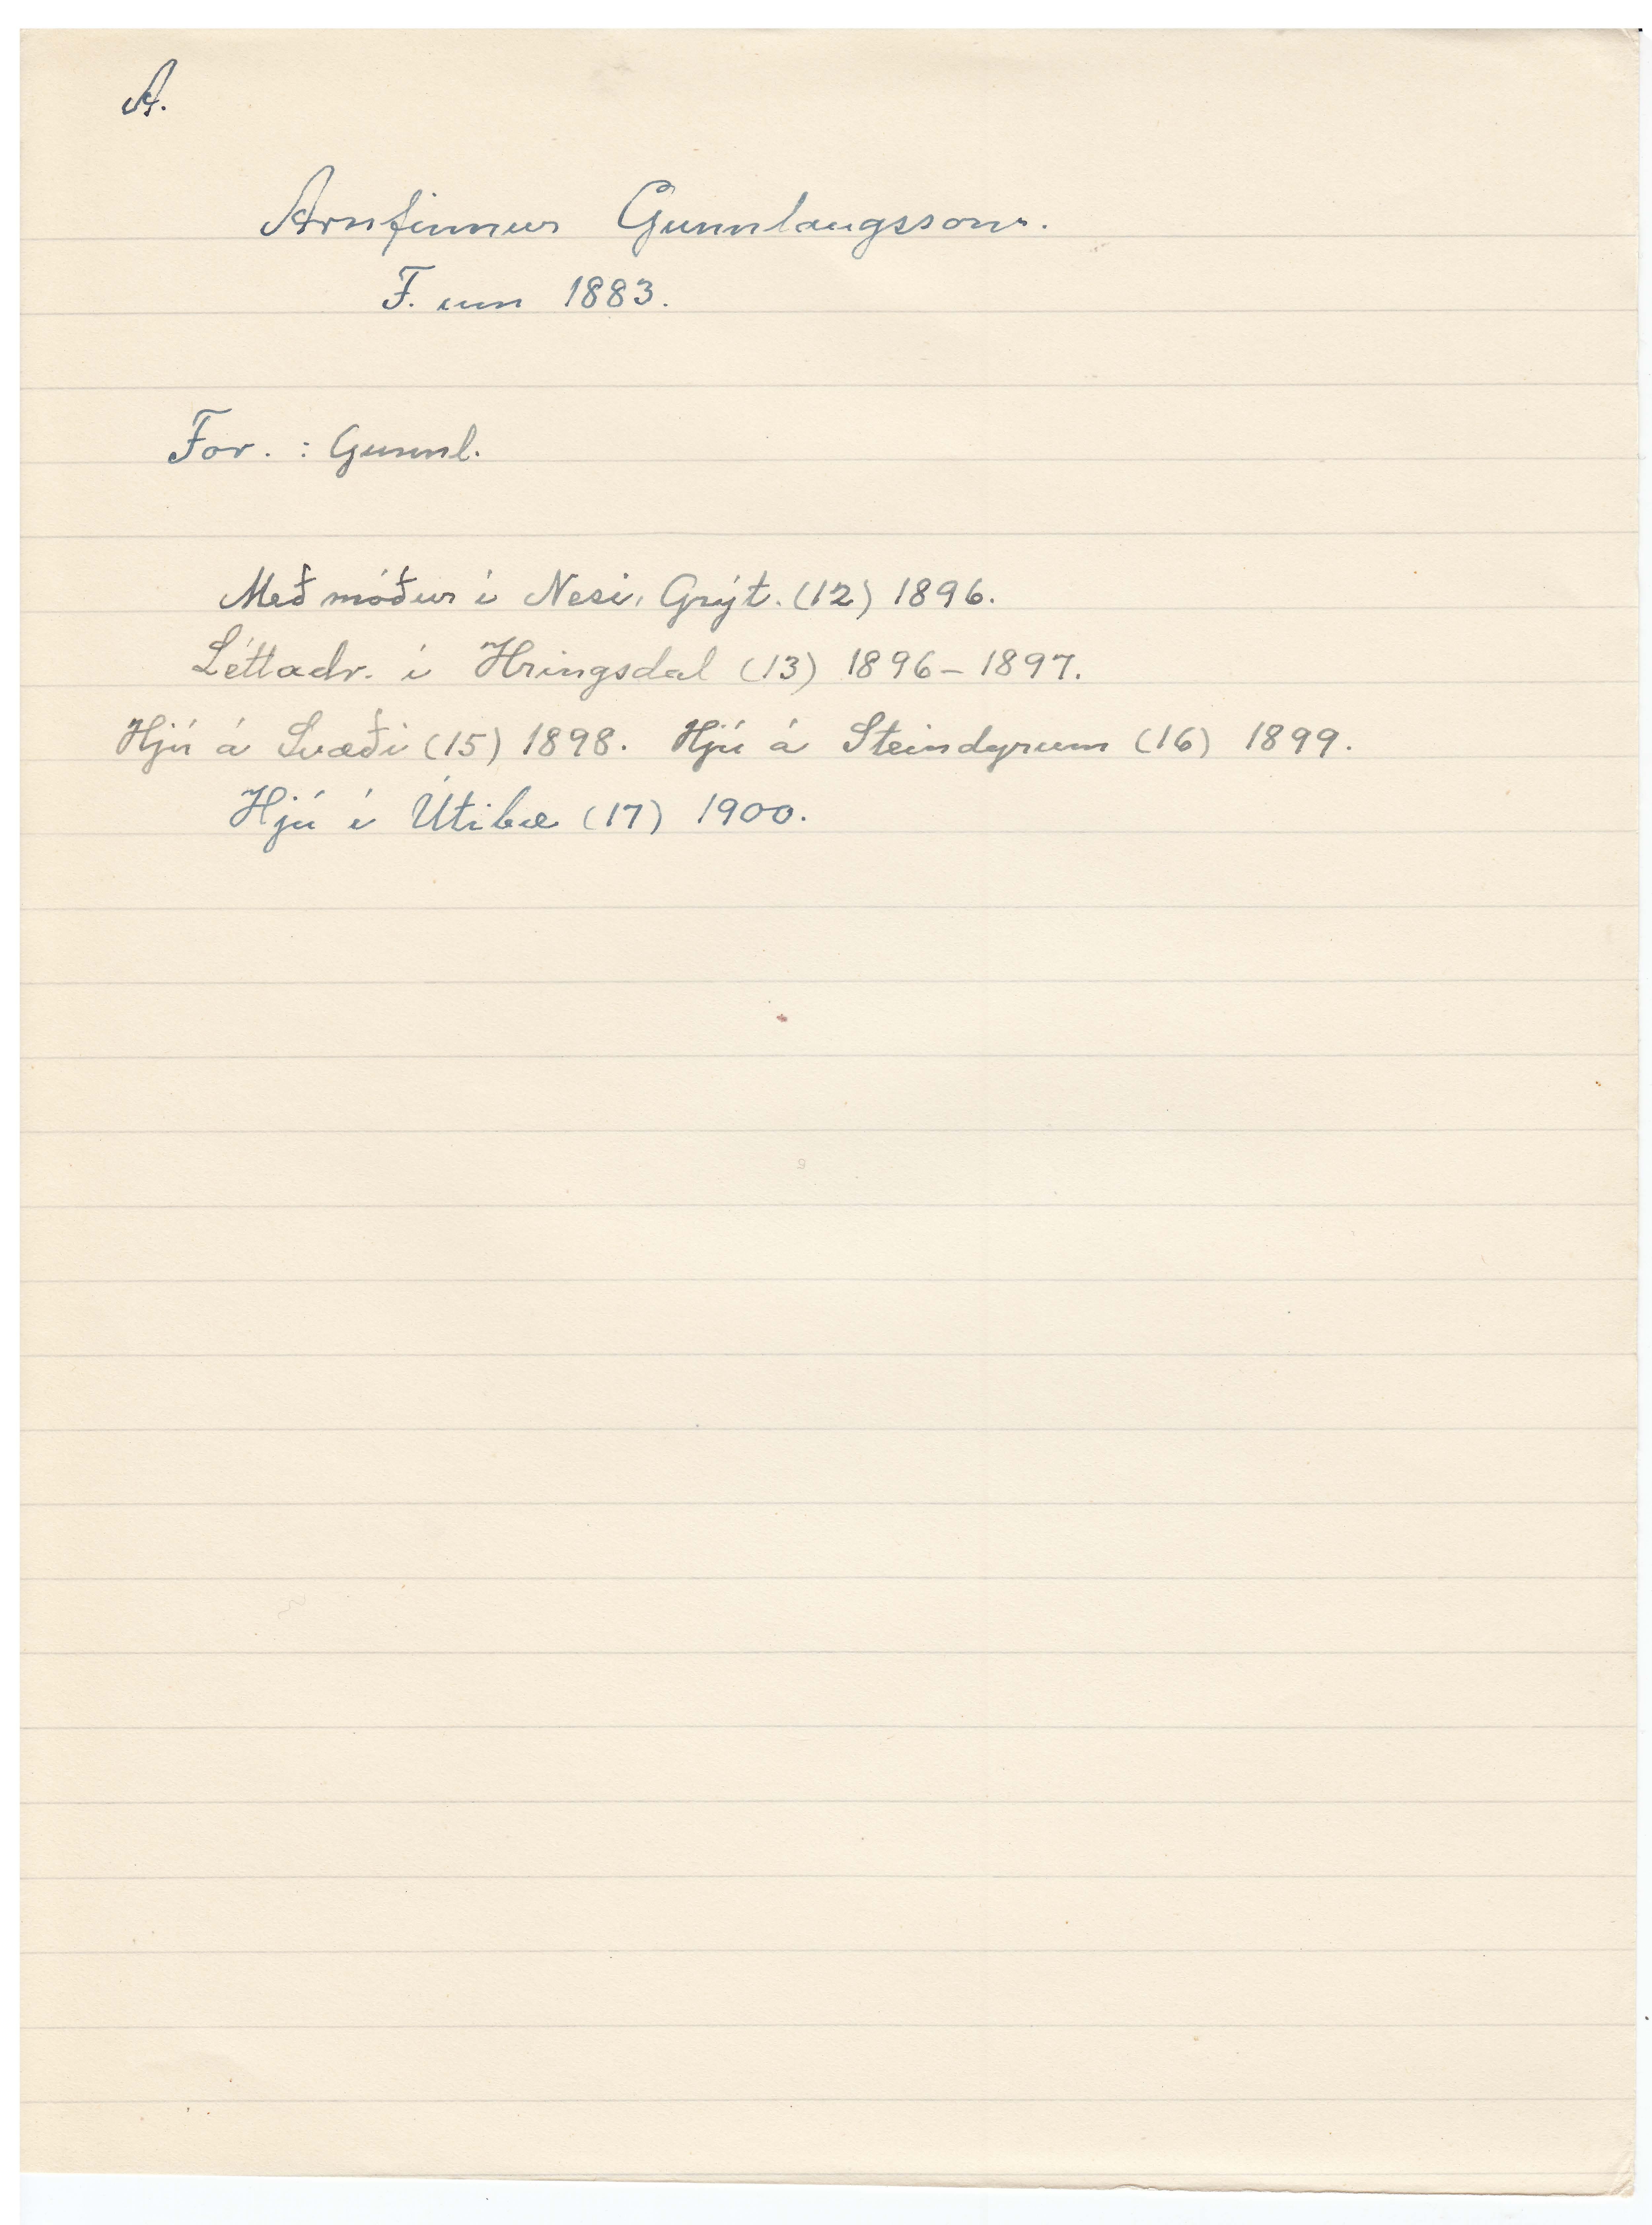 A.
Arnfinnur Gunnlaugsson.
F. um 1883.
For. : Gunnl.
Með móður í Nesi, Grýt. (12) 1896.
Léttadr. í Hringsdal (13) 1896-1897.
Hjú á Svæði (15) 1898. Hjú á Steindyrum (16) 1899.
Hjú í Útibæ (17) 1900.